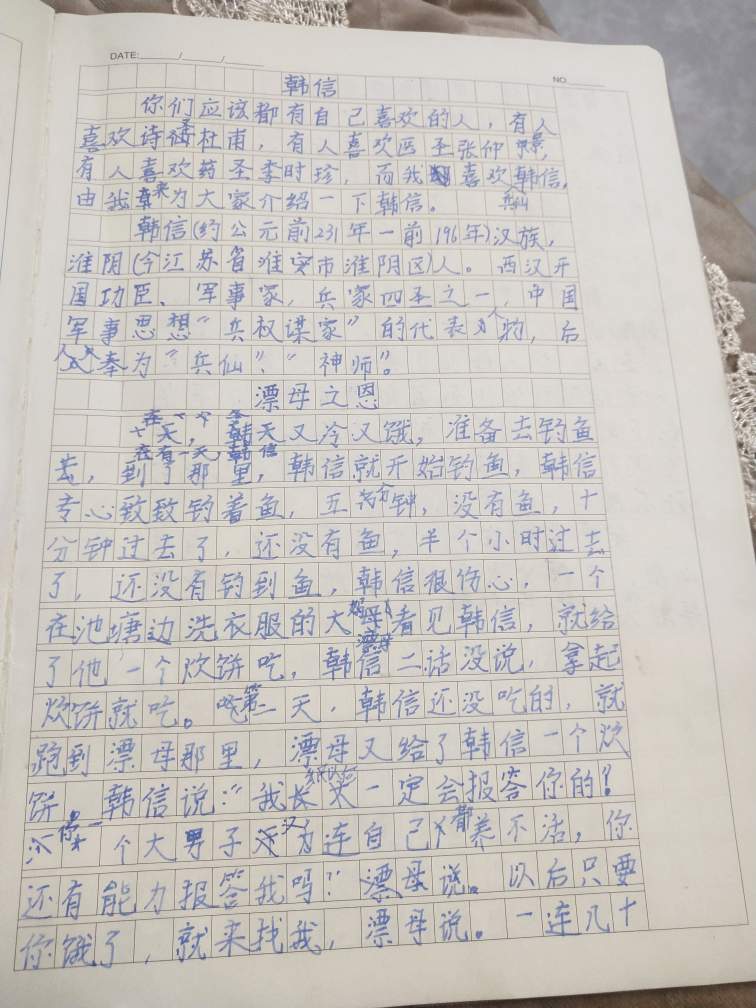 DATE: / /
NO
韩信
你们应该都有自己喜欢的人，有人
喜欢诗圣杜甫，有人喜欢医圣张仲景，
有人喜欢药圣李时珍，而我喜欢韩信，
兵仙
由我来为大家介绍一下韩信。
韩信(约公元前231年一前196年)汉族，
淮阴(今江苏省淮安市淮阴区)人。西汉开
国功臣、军事家，兵家四圣之一，中国
军事思想“兵权谋家”的代表人物，后
人奉为“兵仙”、“神师”。
漂母之恩
在一个冬
天，韩天又冷又饿，准备去钓鱼
在有一天，韩信
去，到了那里，韩信就开始钓鱼，韩信
专心致致钓着鱼，五分钟，没有鱼，十
分钟过去了，还没有鱼，半个小时过去
了，还没有钓到鱼，韩信很伤心，一个
在池塘边洗衣服的大看见韩信，就给
漂母
了他一个炊饼吃，韩信二话没说，拿起
炊饼就吃。第二天，韩信还没吃的，就
跑到漂母那里，漂母又给了韩信一个炊
饼，韩信说：“我长大一定会报答你的！”
你一个大男子汉连自己都养不活，你
还有能力报答我吗？”漂母说。以后只要
你饿了，就来找我，漂母说。一连几十